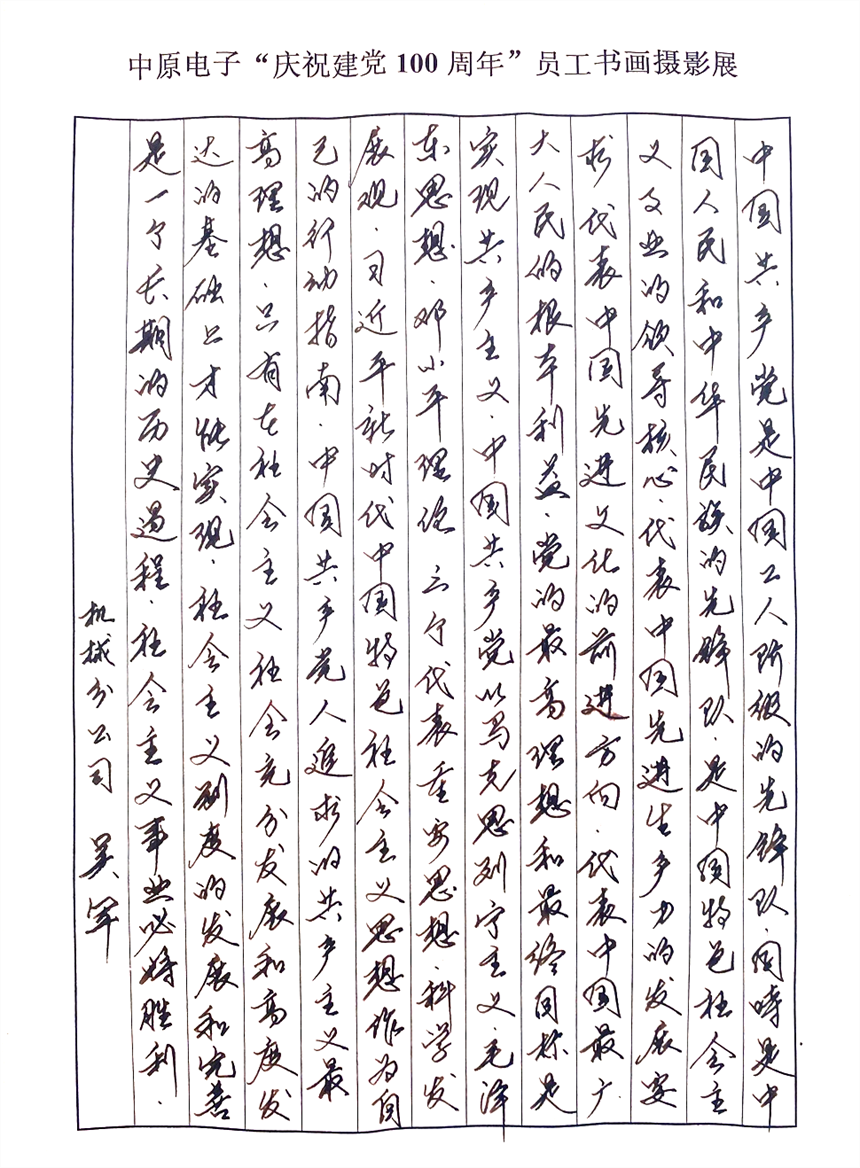 中原电子“庆祝建党100周年”员工书画摄影展
中国共产党是中国工人阶级的先锋队.同时是中
国人民和中华民族的先锋队.是中国特色社会主
义事业的领导核心.代表中国先进生产力的发展要
求代表中国先进文化的前进方向.代表中国最广
大人民的根本利益.党的最高理想和最终目标是
实现共产主义.中国共产党以马克思列宁主义.毛泽
东思想.邓小平理论 三个代表重要思想.科学发
展观.习近平新时代中国特色社会主义思想作为自
己的行动指南.中国共产党人追求的共产主义最
高理想.只有在社会主义社会充分发展和高度发
达的基础上才能实现.社会主义制度的发展和完善
是一个长期的历史过程.社会主义事业必将胜利.
机械分公司 吴军